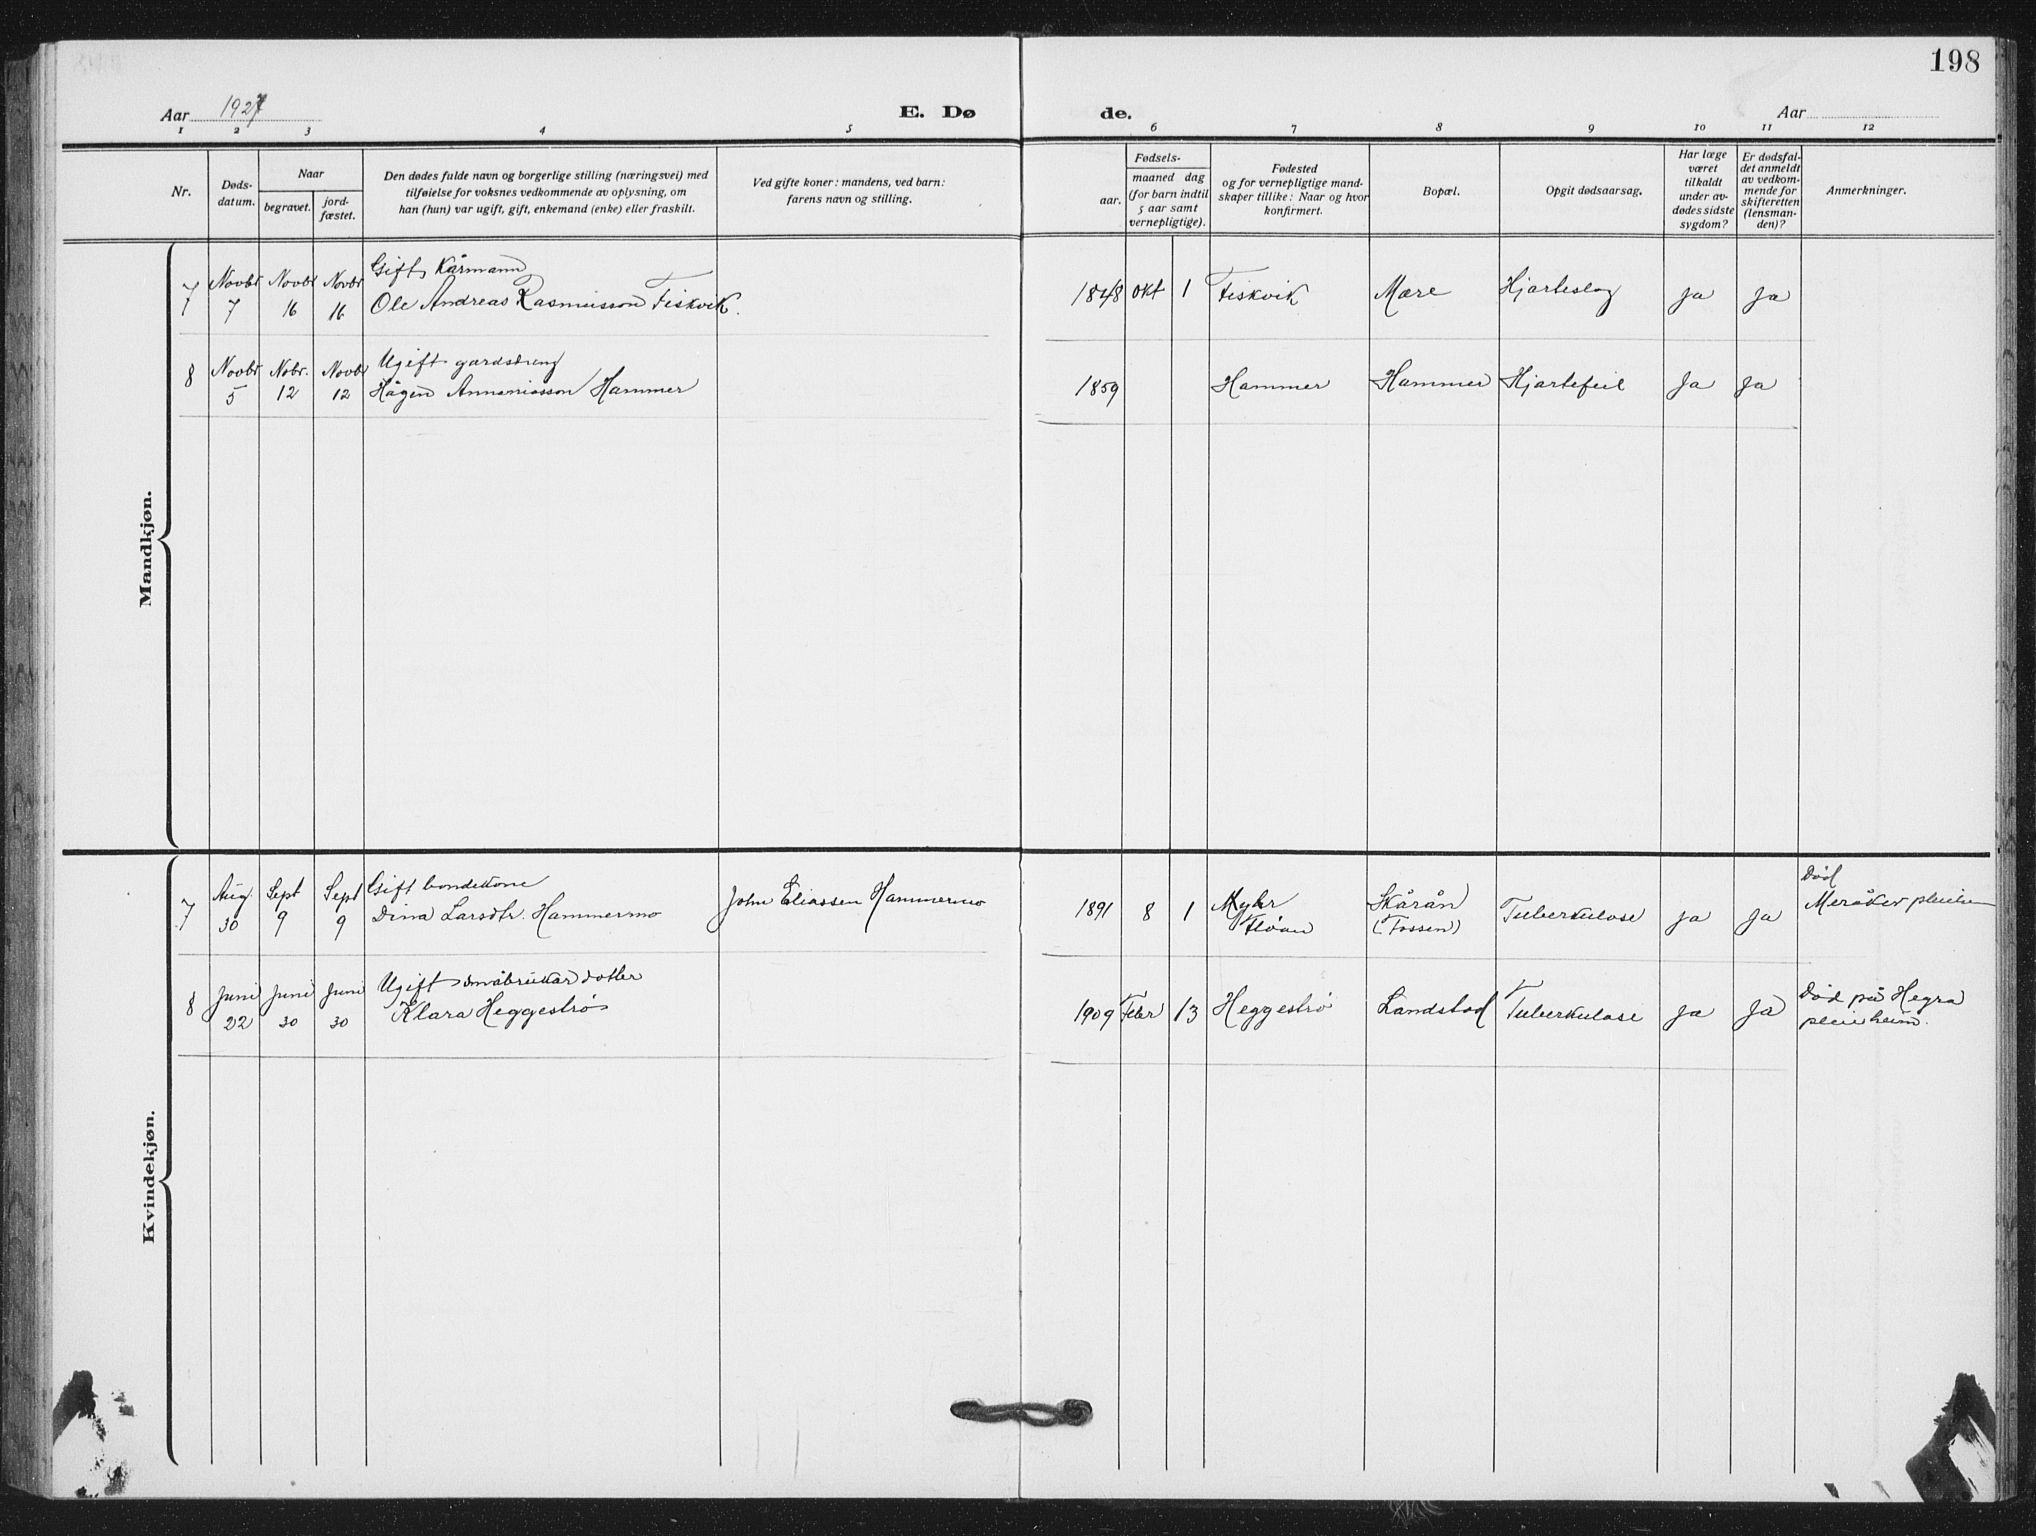 198
Aar 1927
E. Dø
de.
Aar
1 2 3 4 5 6 7 8 9 10 11 12
Nr.
Døds-
datum.
Naar
begravet.
jord-
fæstet.
Den dødes fulde navn og borgerlige stilling (næringsvei) med
tilføielse for voksnes vedkommende av oplysning, om
han (hun) var ugift, gift, enkemand (enke) eller fraskilt.
Ved gifte koner: mandens, ved barn:
farens navn og stilling.
Fødsels-
aar.
maaned dag
(for barn indtil
5 aar samt
vernepligtige).
Fødested
og for vernepligtige mand-
skaper tillike: Naar og hvor
konfirmert.
Bopæl.
Opgit dødsaarsag.
Har læge
været
tilkaldt
under av-
dødes sidste
sygdom?
Er dødsfal-
det anmeldt
av vedkom-
mende for
skifteretten
(lensman-
den)?
Anmerkninger.
Mandkjøn.
7 Novbr 7 Novbr 16 Novbr 16
Gift Kårmann
Ole Andreas Rasmusson Fiskvik.
1848 okt 1 Fiskvik Mære Hjarteslag ja ja
8 Novbr 5 Nobr. 12 Novbr 12
Ugift gardsdreng
Hågen Annaniasson Hammer
1859 Hammer Hammer Hjartefeil Ja Ja
Kvindekjøn.
7 Aug 30 Sept 9 Sept 9
Gift bondekone
Dina Larsdtr. Hammermo
John Eliassen Hammermo
1891 8 1 Myhr
Fløan
Skårån
(Fossen)
Tuberkulose ja ja
Død
Meråker pleiehe
8 Juni 22 Juni 30 Juni 30
Ugift småbrukar dotter
Klara Heggestrø
1909 Febr 13 Heggestrø Landstad Tuberkulose ja ja
Død på Hegra
pleieheim.